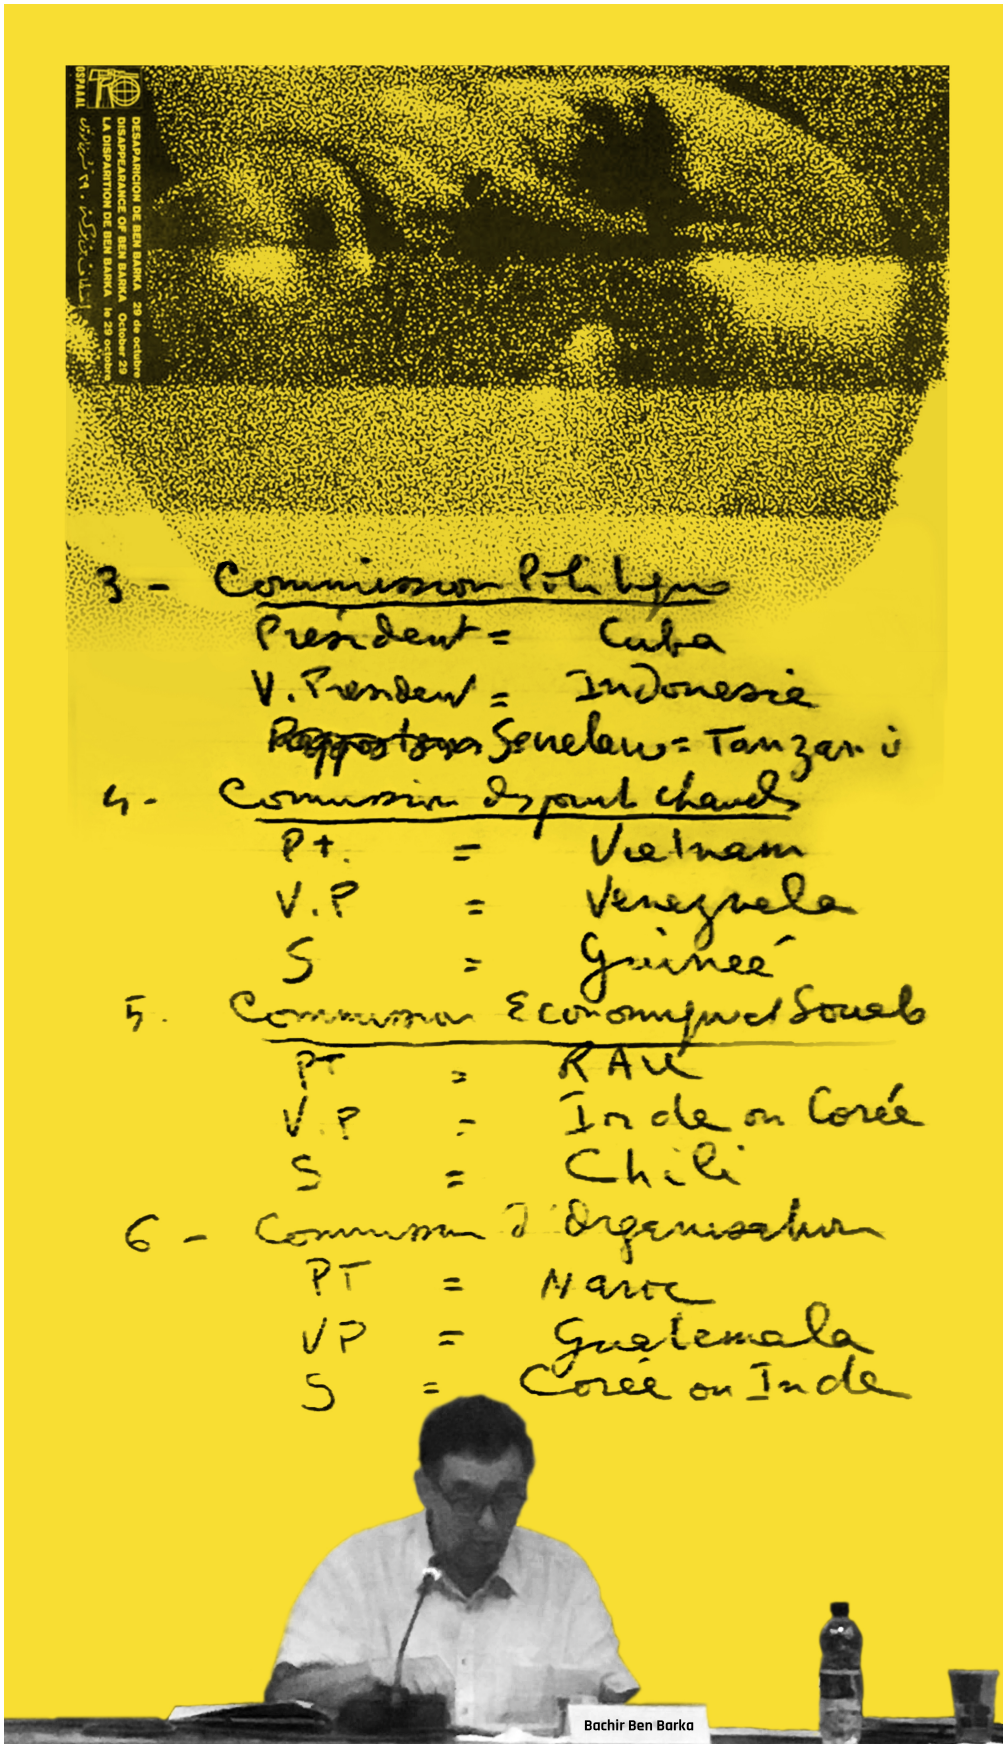 OSPAAAL
DESAPARICION DE BEN BARKA 29 de octubre
DISAPPEARANCE OF BEN BARKA October 29
LA DISPARITION DE BEN BARKA le 29 octobre
3 - Commission Politique
Président = Cuba
V. President = Indonesie
Rapporteur = Tanzanie
4 - Commission des points chauds
Pt. = Vietnam
V.P = Venezuela
S = Guineé
5. Commission Economique et Sociale
PT = RAU
V.P = Inde ou Corée
S = Chili
6 - Commission d'Organisation
PT = Maroc
VP = Guatemala
S = Corée ou Inde
Bachir Ben Barka